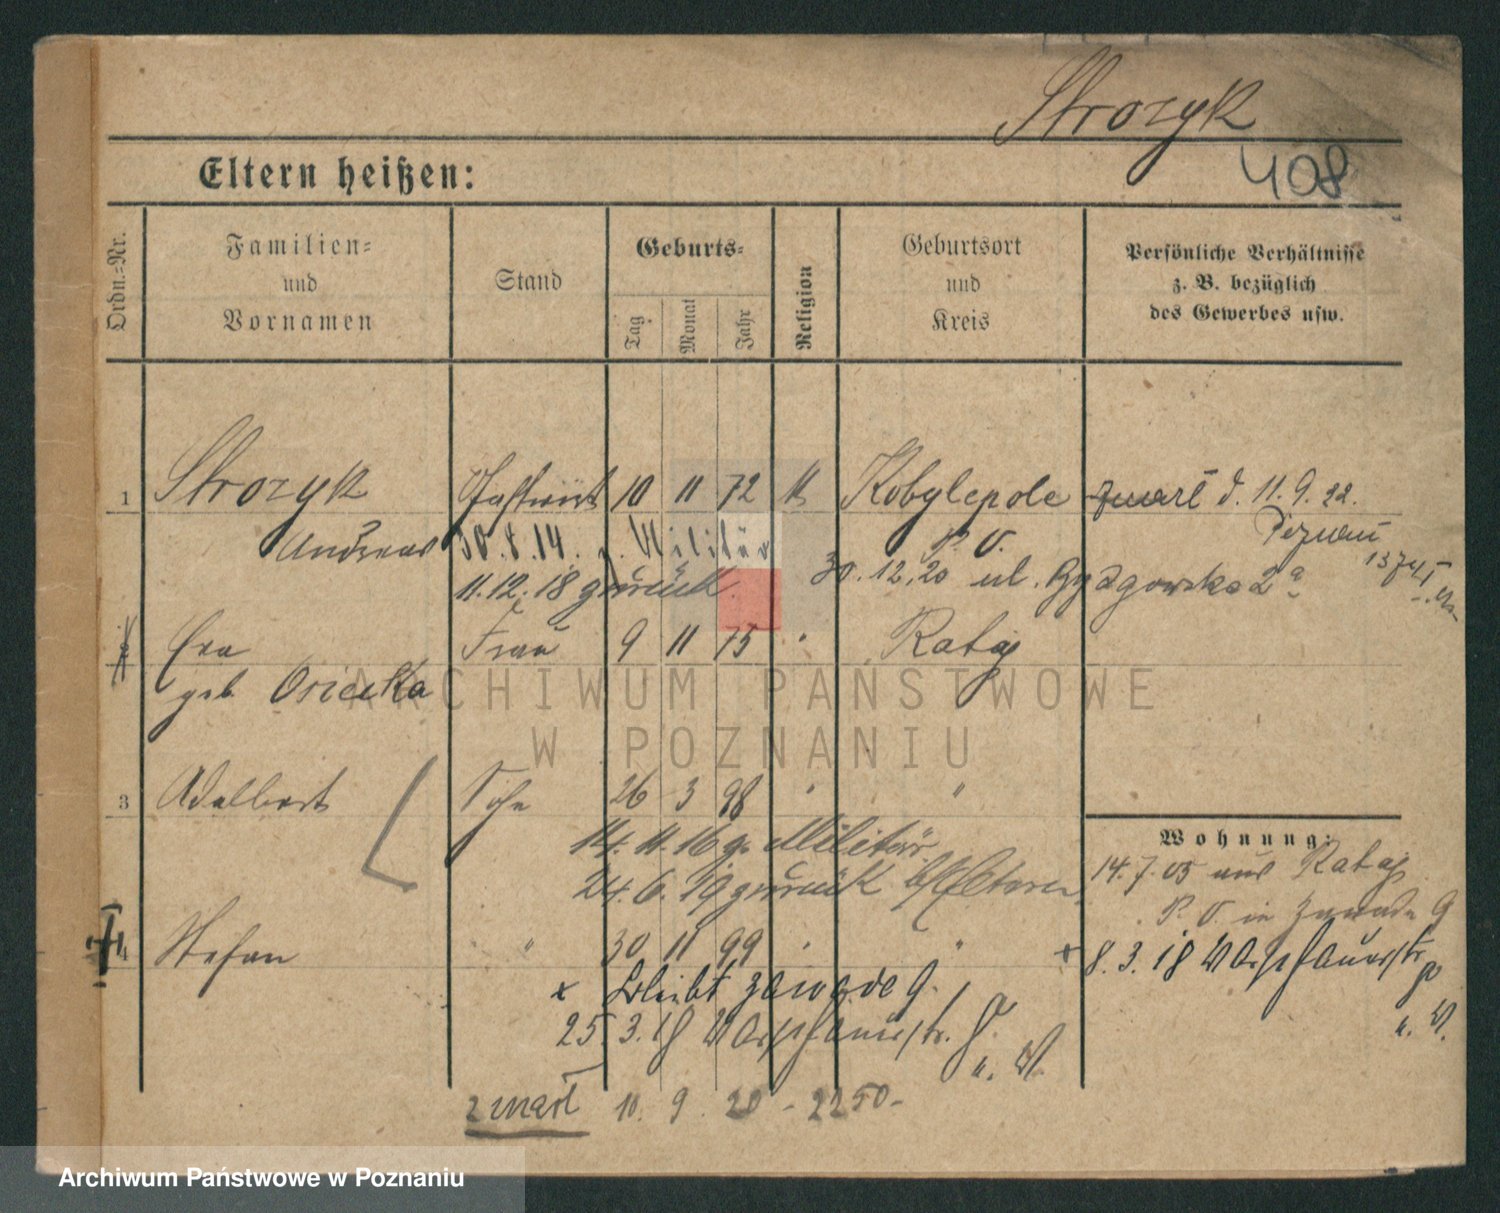 Strozyk
408
Eltern heißen:
Ordn.-Nr.
Familien-
und
Vornamen
Stand
Geburts-
Tag
Monat
Jahr
Religion
Geburtsort
und
Kreis
Persönliche Verhältnisse
z. B. bezüglich
des Gewerbes usw.
1 Strozyk Gastwirt 10 11 72 k Kobylepole zmarł d. 11. 9. 22.
Andreas 30. 8. 14. z. Militär P. O. Poznań
11. 12. 18 zurück. 30. 12. 20 ul. Bydgowska 2a
Eva Frau 9 11 75 Rataj
geb Osiecka
ARCHIWUM PAŃSTWOWE
W POZNANIU
3 Adalbert Sohn 26 3 98 "
14. 11. 16 z. Militär
24. 6. 19 zurück
Wohnung:
14. 7. 05 aus Rataj
P. O. in Zawade 9
4 Stefan " 30 11 99 "
+ 8. 3. 18 Warschauerstr
x bleibt Zawade 9.
25. 3. 18 Warschauerstr.
u. W.
u. W.
zmarł 10. 9. 20 - 2250 -
Archiwum Państwowe w Poznaniu